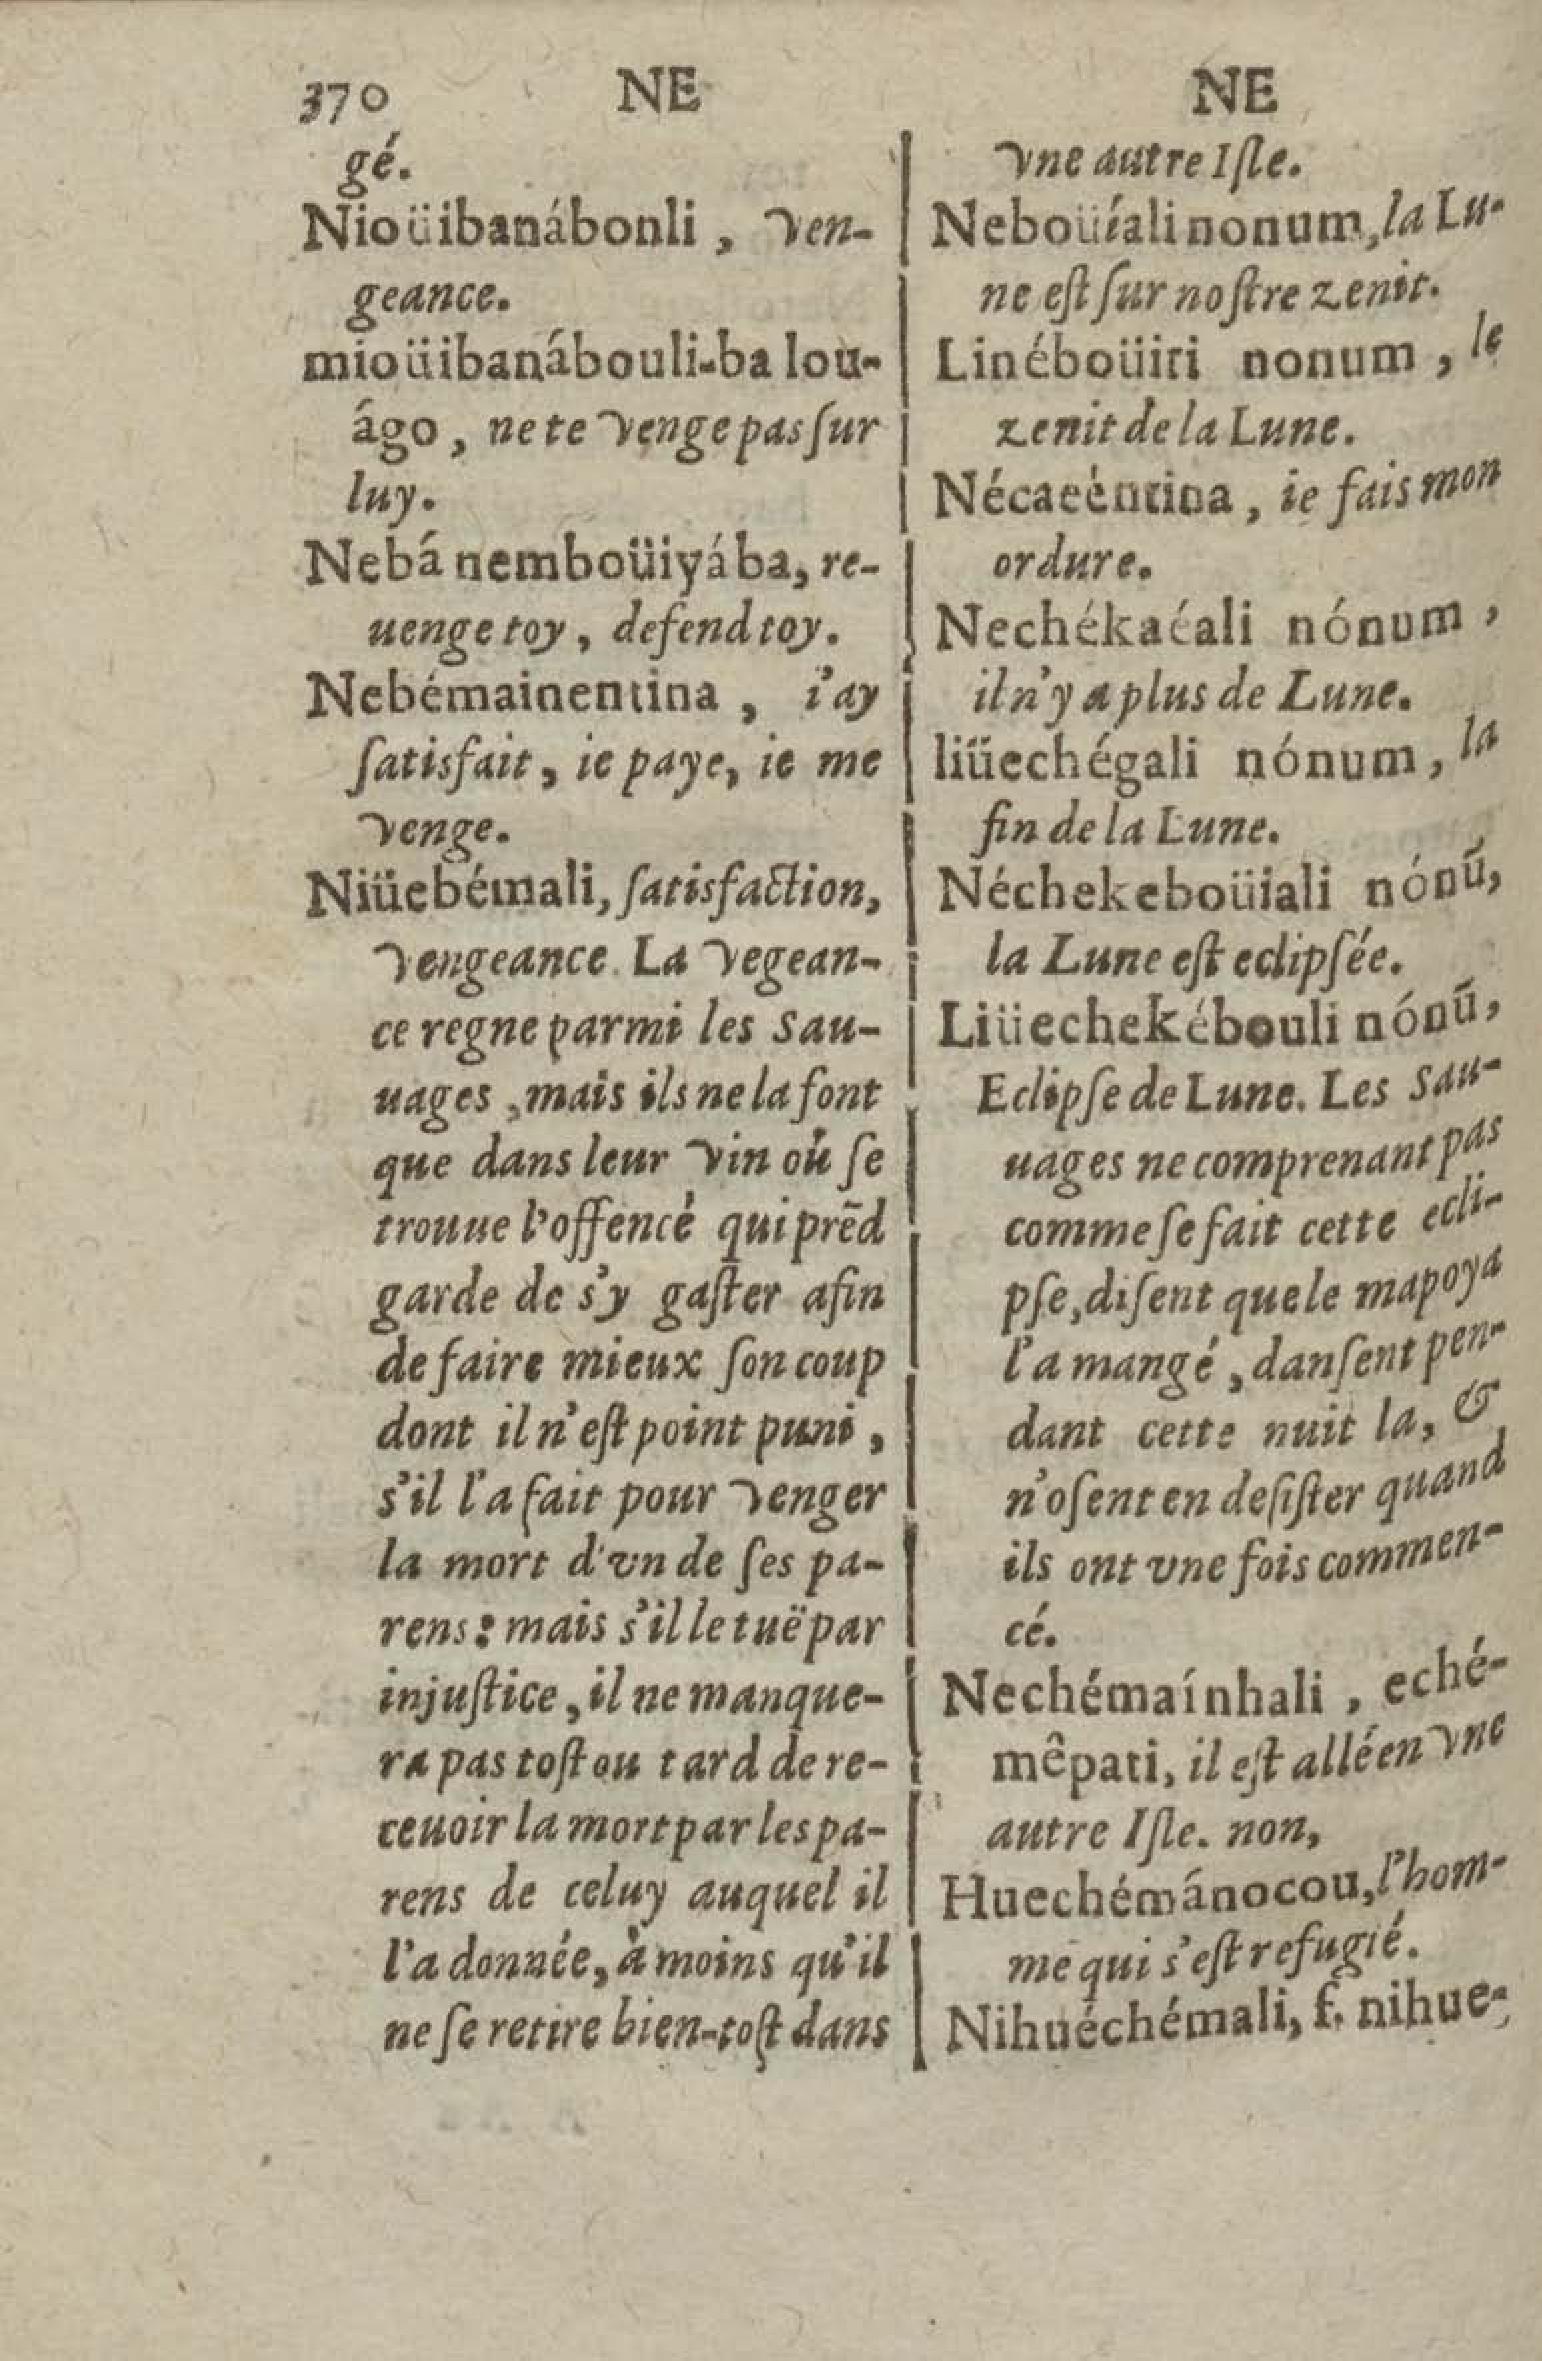 370 NE NE
gé.
Nioüibanábonli, ven-
geance.
mioüibanábouli-ba lou-
ágo, ne te venge pas ſur
luy.
Nebá nemboüiyába, re-
uenge toy, defend toy.
Nebémainentina, i'ay
ſatisfait, ie paye, ie me
venge.
Niüebémali, ſatisfaction,
vengeance. La vegean-
ce regne parmi les Sau-
uages, mais ils ne la font
que dans leur vin où ſe
trouue l'offencé qui prēd
garde de s'y gaſter afin
de faire mieux ſon coup
dont il n'eſt point puni,
s'il l'a fait pour venger
la mort d'vn de ſes pa-
rens: mais s'il le tuë par
injuſtice, il ne manque-
ra pas toſt ou tard de re-
ceuoir la mort par les pa-
rens de celuy auquel il
l'a donnée, à moins qu'il
ne ſe retire bien-toſt dans
vne autre Iſle.
Neboüíali nonum, la Lu-
ne eſt ſur noſtre zenit.
Linéboüiti nonum, le
zenit de la Lune.
Nécaeèntina, ie fais mon
ordure.
Nechékaéali nónum,
il n'y a plus de Lune.
liüechégali nónum, la
fin de la Lune.
Néchekeboüiali nónũ,
la Lune eſt eclipſée.
Liüechekébouli nónũ,
Eclipſe de Lune. Les Sau-
uages ne comprenant pas
comme ſe fait cette ecli-
pſe, diſent que le mapoya
l'a mangé, danſent pen-
dant cette nuit la, &
n'oſent en deſiſter quand
ils ont vne fois commen-
cé.
Nechémaínhali, eché-
mêpati, il eſt allé en vne
autre Iſle. non,
Huechémánocou, l'hom-
me qui s'eſt refugié.
Nihuéchémali, f. nihue-